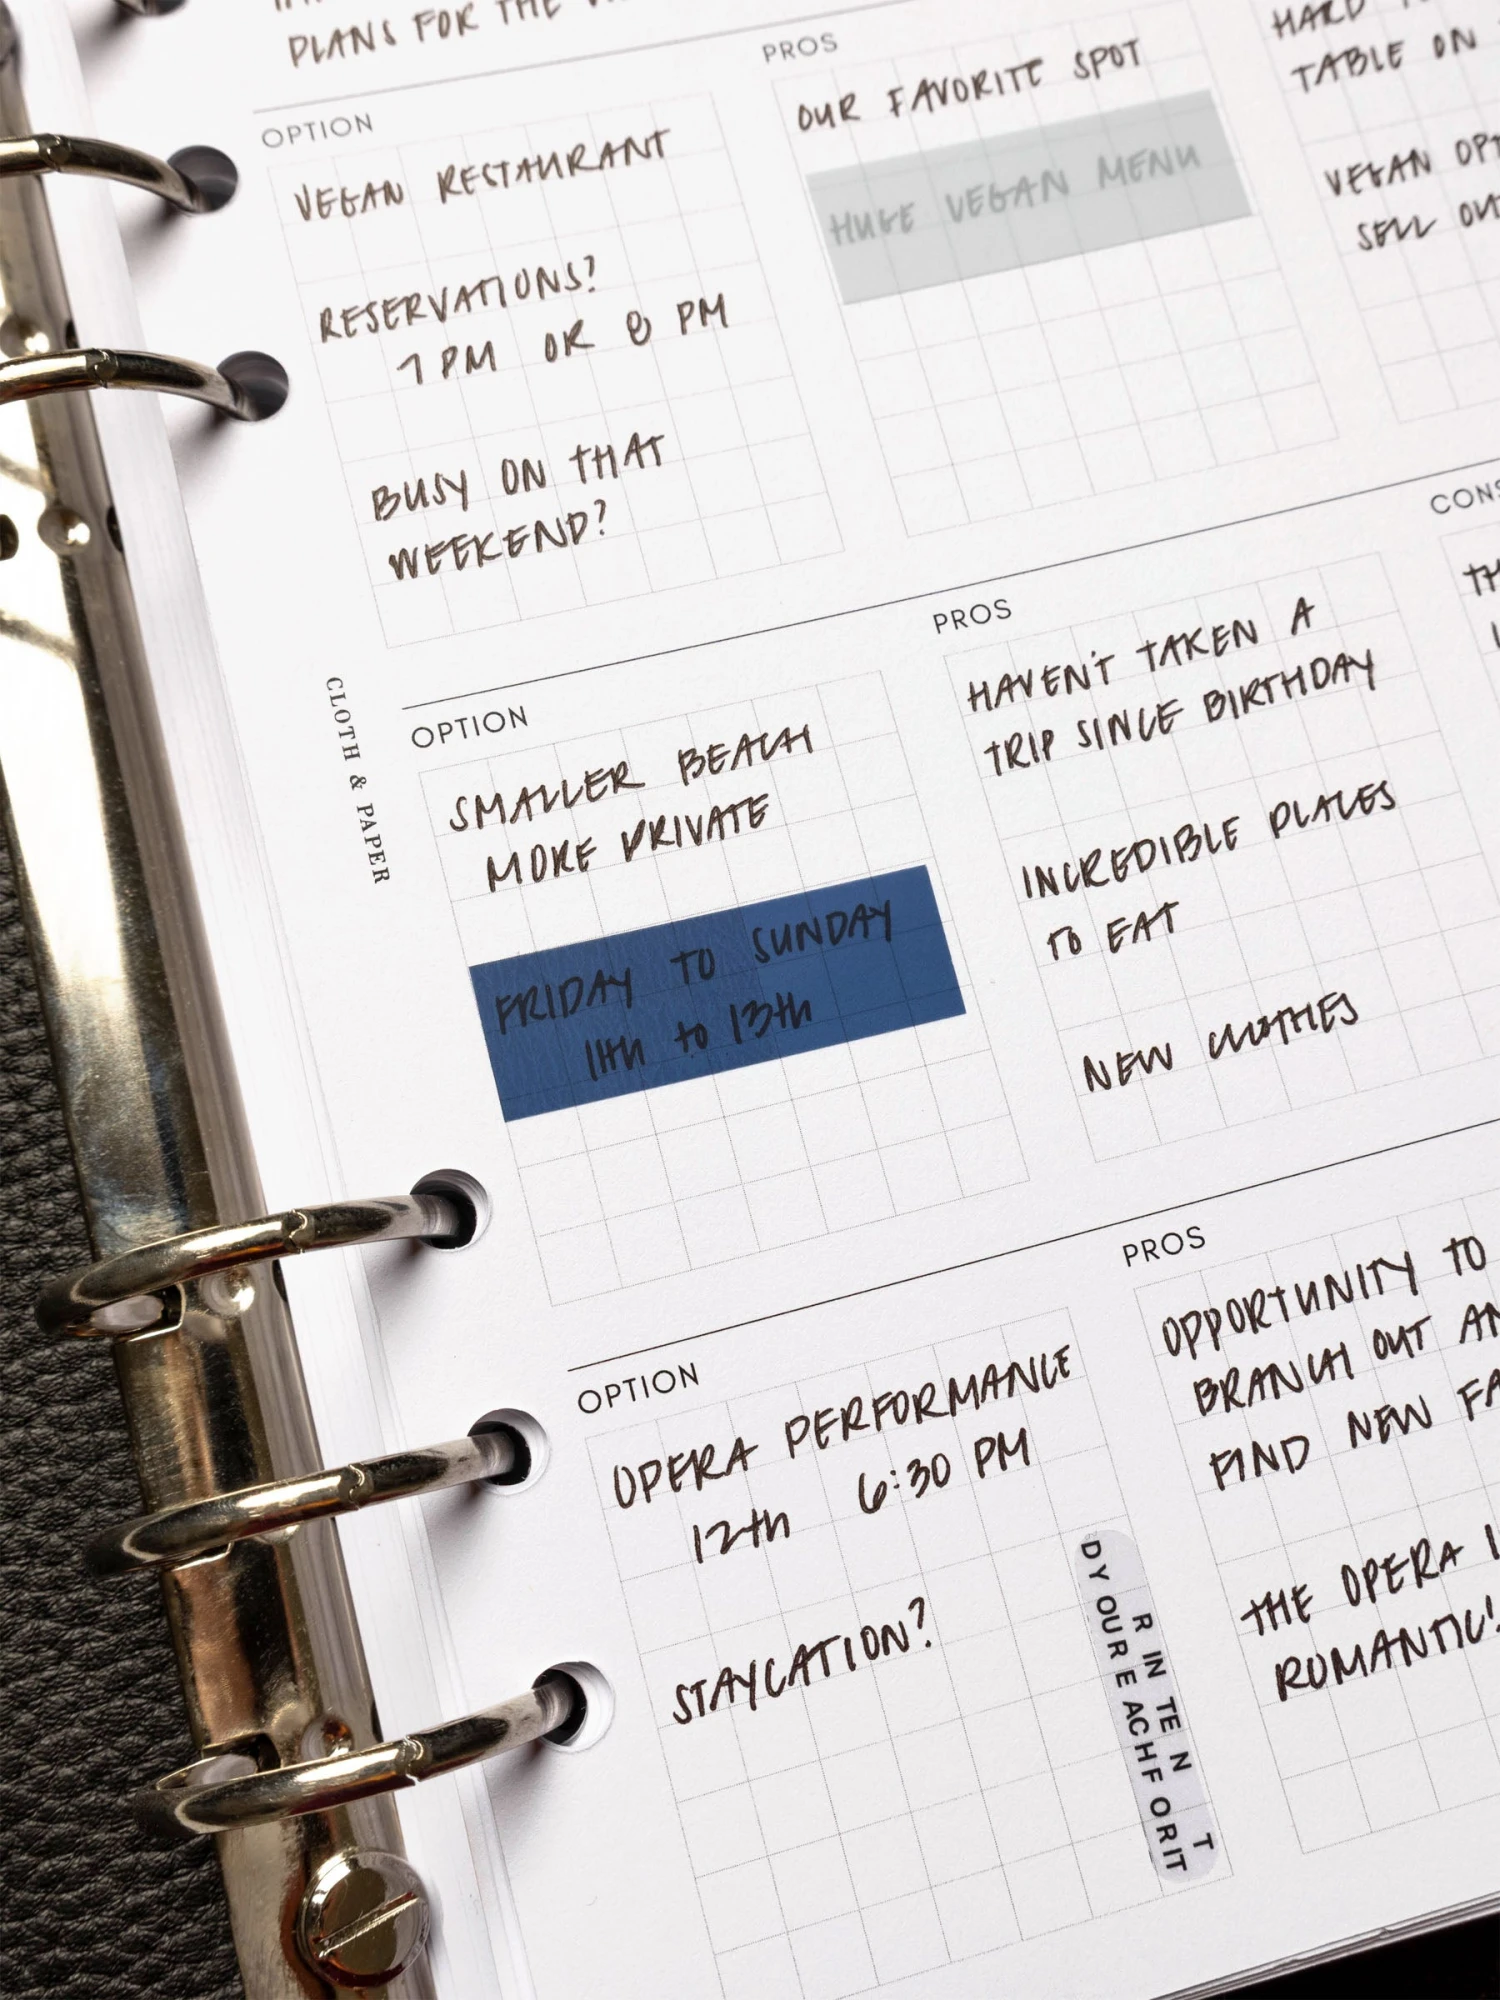 PLANS FOR THE
OPTION
VEGAN RESTAURANT
RESERVATIONS?
7 PM OR 8 PM
BUSY ON THAT
WEEKEND?
PROS
OUR FAVORITE SPOT
HUGE VEGAN MENU
HARD
TABLE ON
VEGAN
SELL
CLOTH & PAPER
OPTION
SMALLER BEACH
MORE PRIVATE
FRIDAY TO SUNDAY
11th to 13th
PROS
HAVEN'T TAKEN A
TRIP SINCE BIRTHDAY
INCREDIBLE PLACES
TO EAT
NEW CLOTHES
CONS
OPTION
OPERA PERFORMANCE
12th 6:30 PM
STAYCATION?
R IN TE N T
D Y OUR E ACH F ORIT
PROS
OPPORTUNITY TO
BRANCH OUT
FIND NEW
THE OPERA
ROMANTIC!